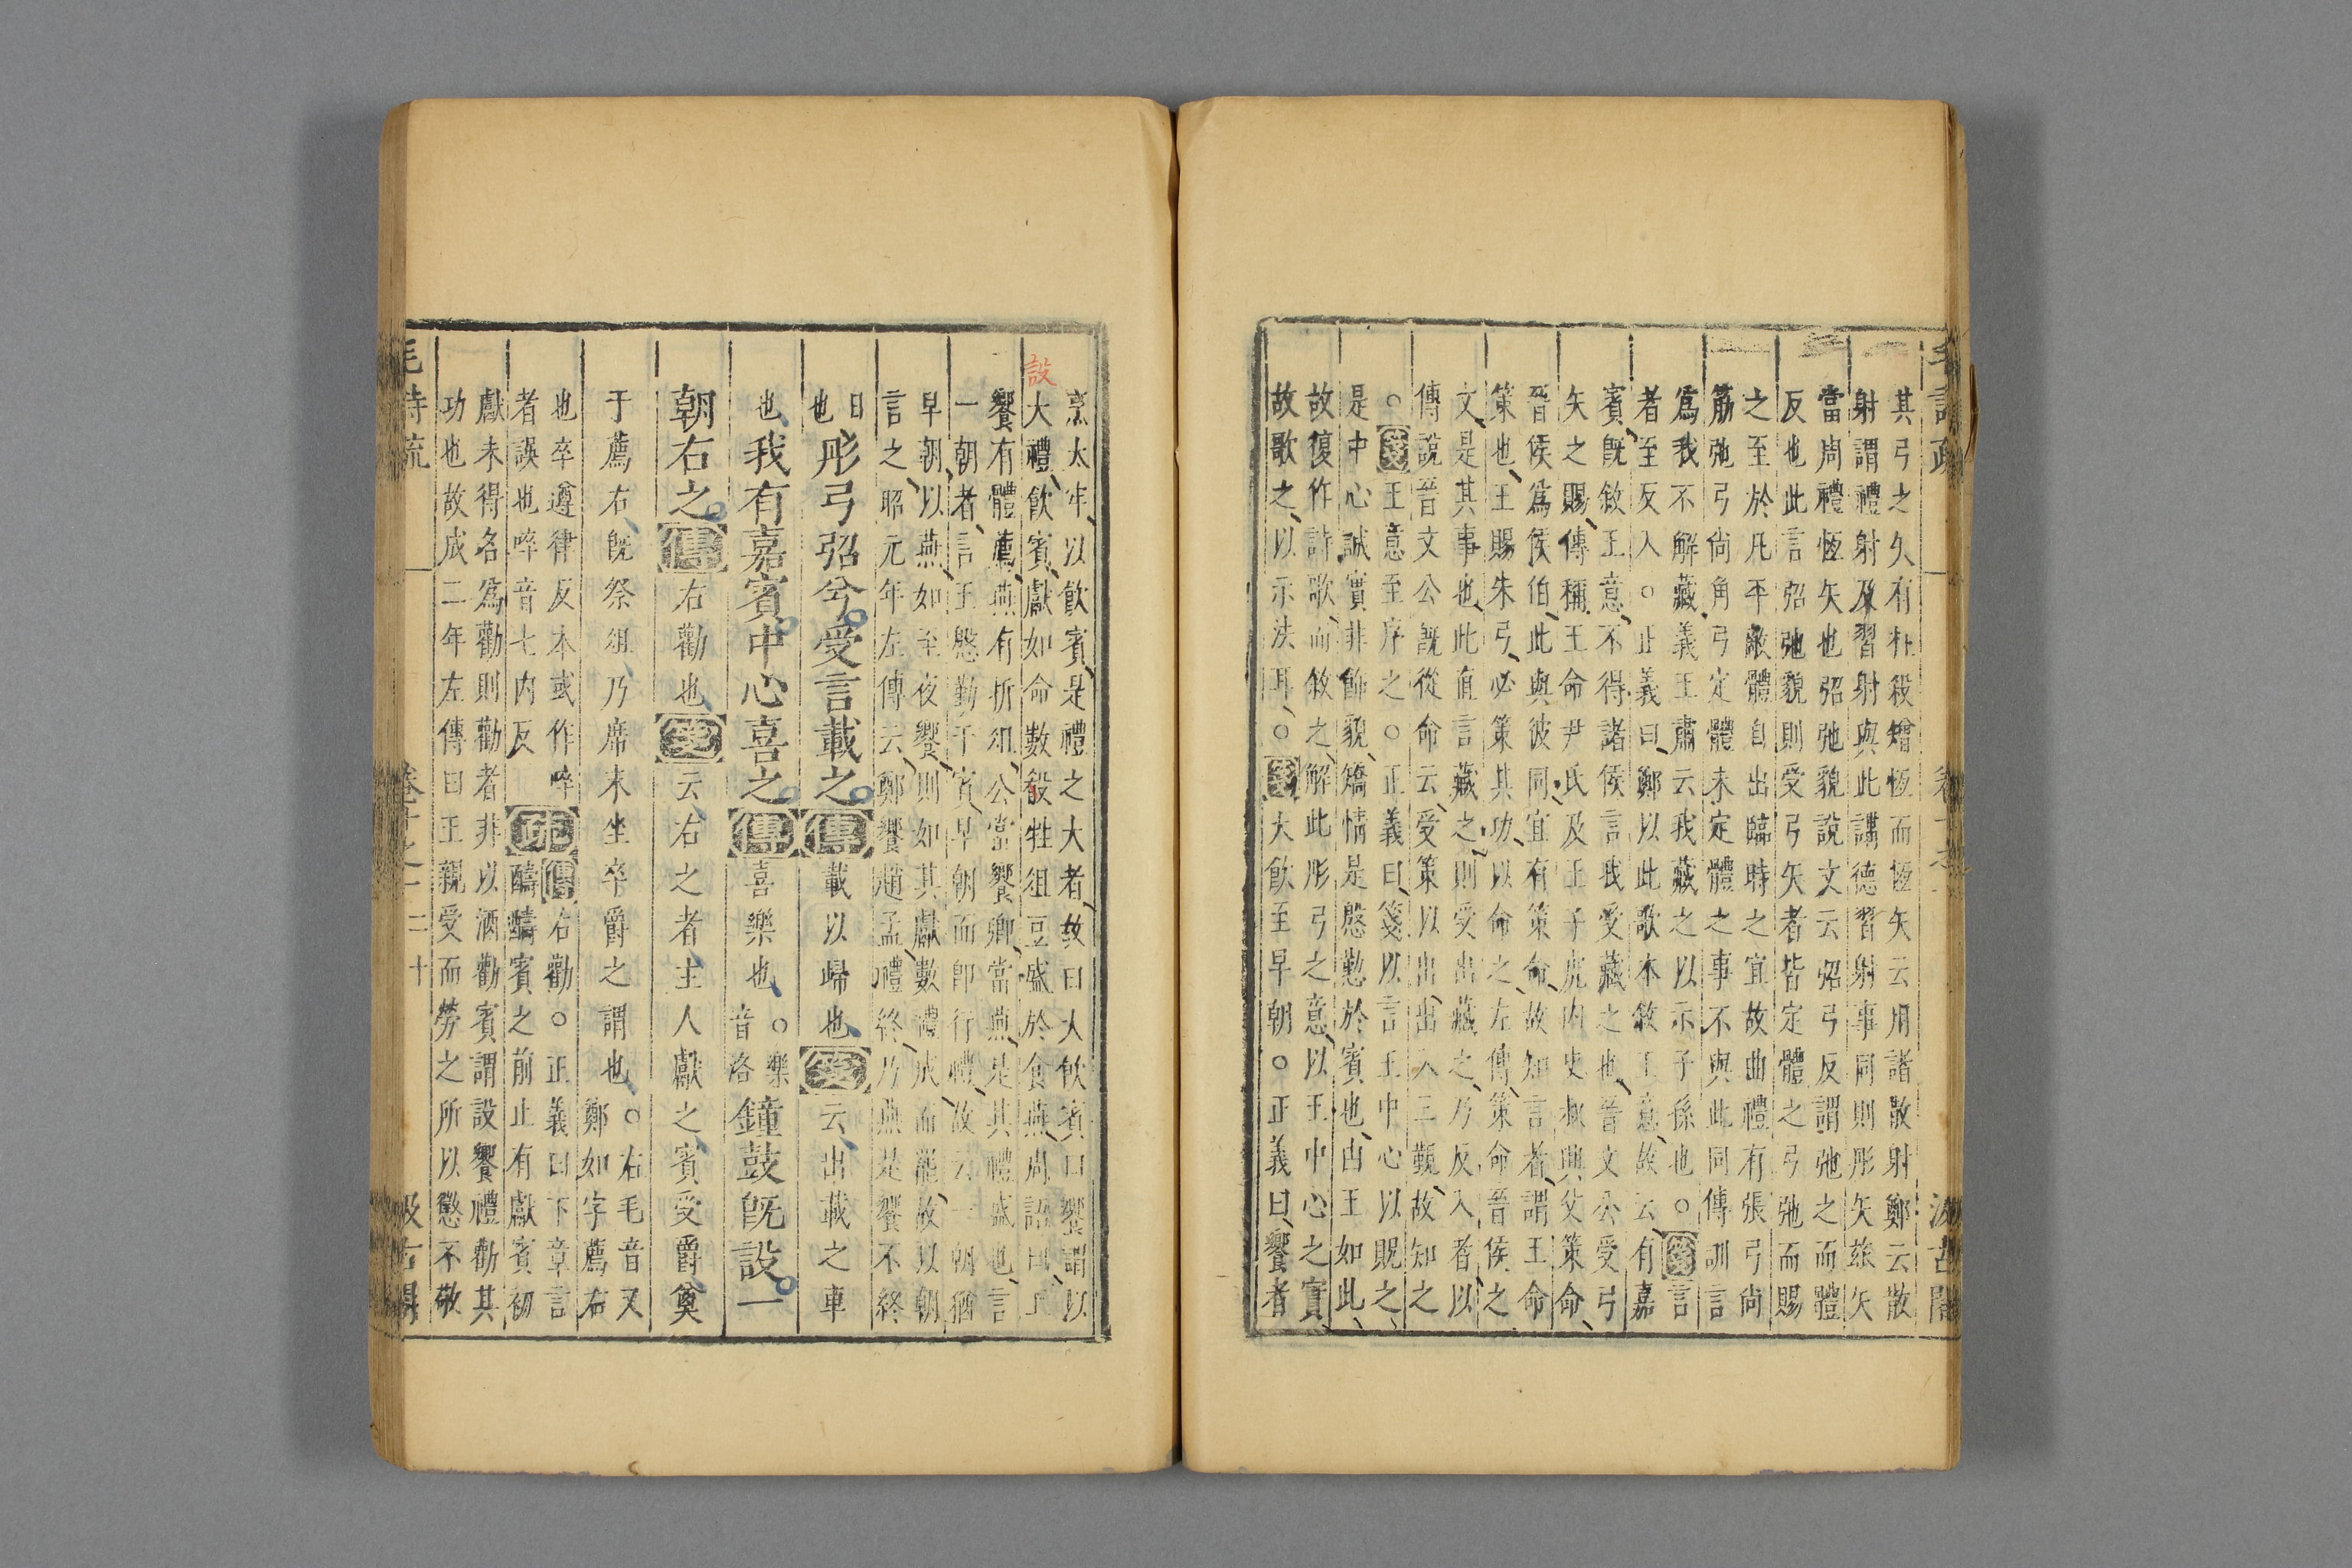 其弓之久有枉殺矰恆而恆矢云用諸散射鄭云散
射謂禮射及習射與此講德習射事同則彤矢玈矢
當周禮恆矢也弨弛貌說文云弨弓反謂弛之而體
反也此言弨弛貌則受弓矢者皆定體之弓弛而賜
之至於凡平敵體自出臨時之宜故曲禮有張弓尙
筋弛弓尙角弓定體未定體之事不與此同傳訓言
爲我不解藏義王肅云我藏之以示子孫也○箋言
者至反入○正義曰鄭以此歌本敘王意故云有嘉
賓旣敘王意不得諸侯言我受藏之也晉文公受弓
矢之賜傳稱王命尹氏及王子虎内史叔興父策命
晉侯爲侯伯此與彼同宜有策命故知言者謂王命
策也王賜朱弓必策其功以命之左傳策命晉侯之
文是其事也此直言藏之則受出藏之乃反入者以
傳說晉文公旣從命云受策以出出入三覲故知之
○箋王意至序之○正義曰箋以言王中心以貺之
是中心誠實非飾貌矯情是慇懃於賓也由王如此
故復作詩歌而敘之解此彤弓之意以王中心之實
故歌之以示法耳○箋大飮至早朝○正義曰饗者
烹太牢以飮賓是禮之大者故曰大飮賓曰饗謂以
大禮飮賓獻如命數殺牲俎豆盛於食燕周語曰王
設
饗有體薦燕有折俎公當饗卿當燕是其禮盛也言
一朝者言王慇勤于賓早朝而卽行禮故云一朝猶
早朝以燕如至夜饗則如其獻數禮成而罷故以朝
言之昭元年左傳云鄭饗趙孟禮終乃燕是饗不終
日
也彤弓弨兮受言載之傳載以歸也箋云出載之車
也我有嘉賓中心喜之傳喜樂也○樂音洛鐘鼓旣設一
朝右之傳右勸也箋云右之者主人獻之賓受爵奠
于薦右旣祭俎乃席末坐卒爵之謂也○右毛音又鄭如字薦右
也卒遵律反本或作啐
者誤也啐音七内反疏傳右勸○正義曰下章言
醻醻賓之前止有獻賓初
獻未得名爲勸則勸者非以酒勸賓謂設饗禮勸其
功也故成二年左傳曰王親受而勞之所以懲不敬